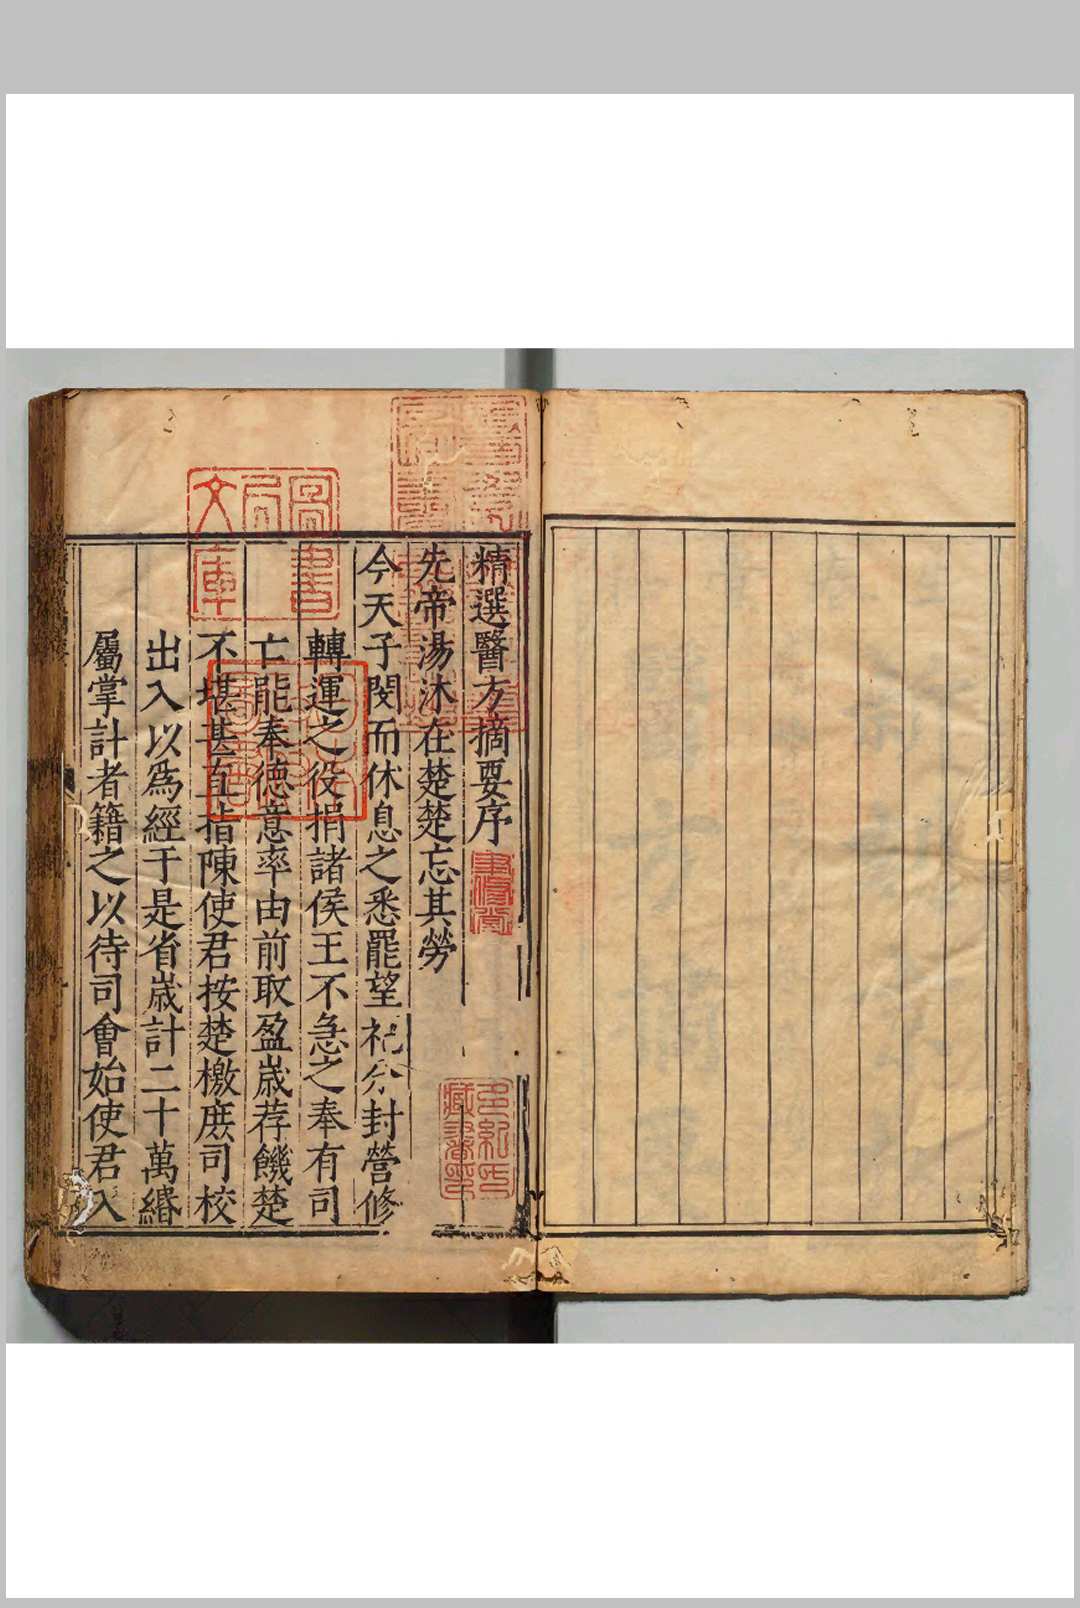 精選醫方摘要序
先帝湯沐在楚楚忘其勞
今天子閔而休息之悉罷望祀分封營修
轉運之役捐諸侯王不急之奉有司
亡能奉德意率由前取盈歲荐饑楚
不堪甚直指陳使君按楚檄庶司校
出入以為經于是省歲計二十萬緡
屬掌計者籍之以待司會始使君入
圖書
局
文庫